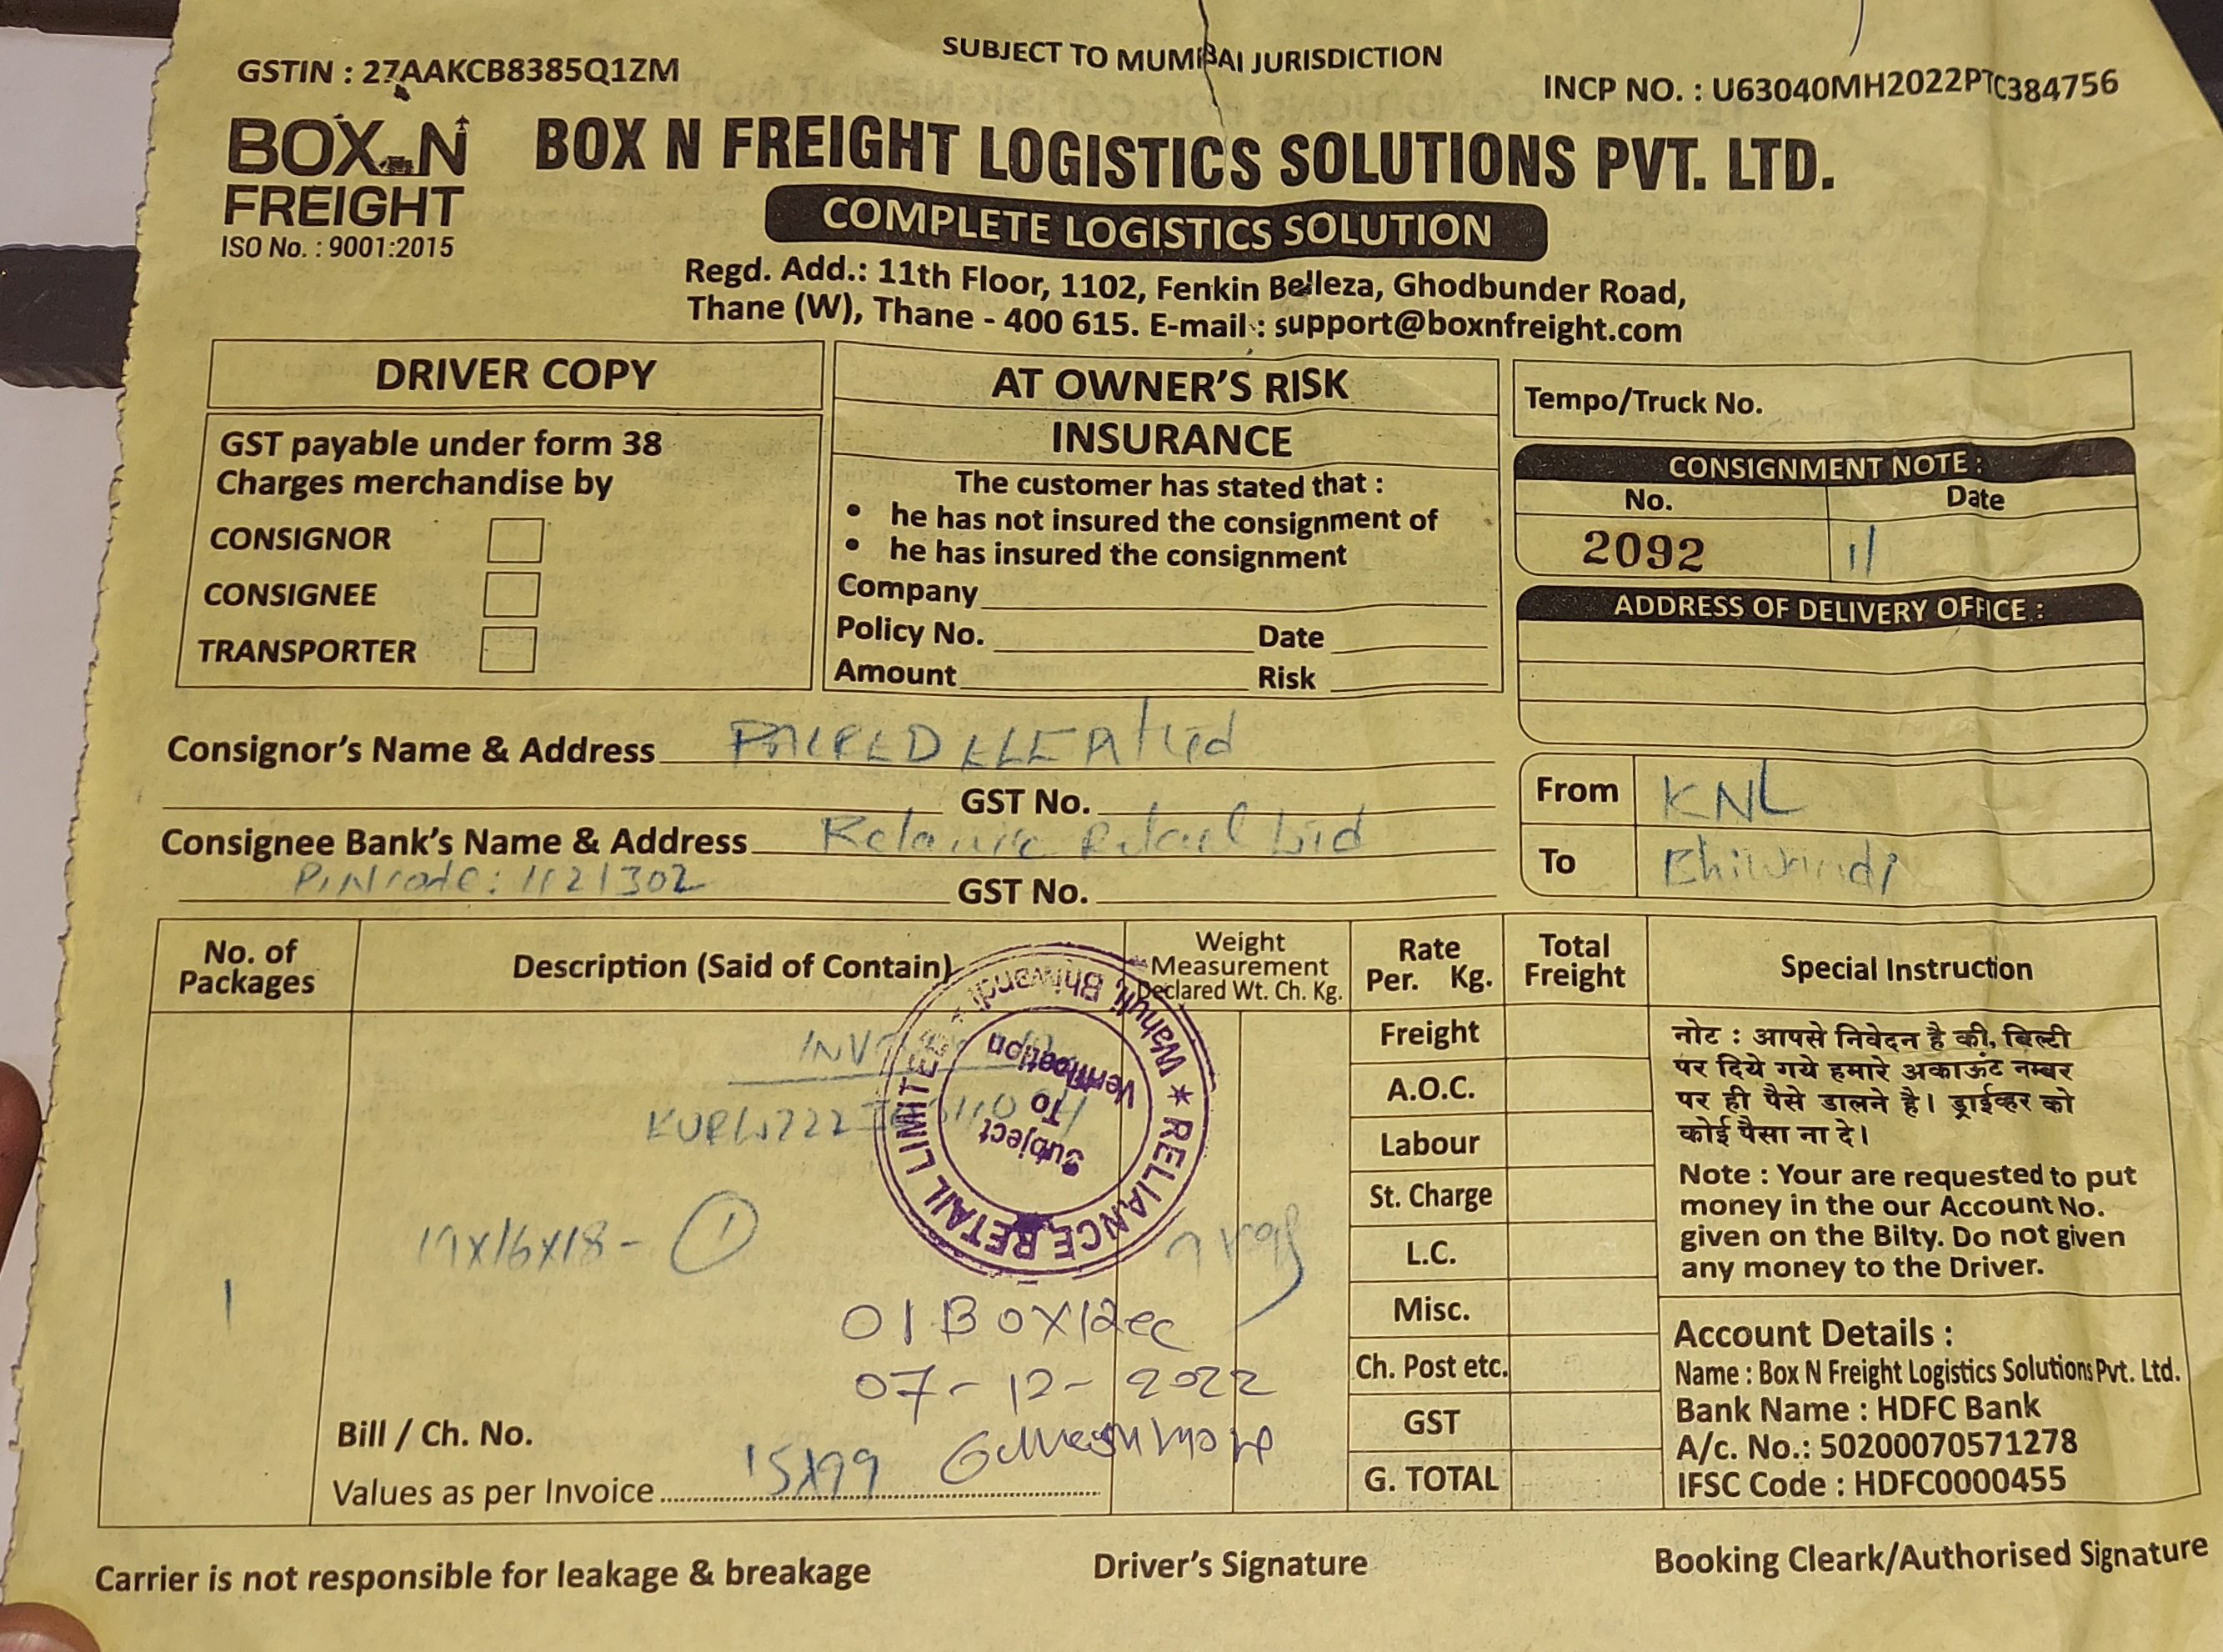 SUBJECT TO MUMBAI JURISDICTION
GSTIN : 27AAKCB8385Q1ZM
INCP NO. : U63040MH2022PTC384756
BOX N FREIGHT
ISO No. : 9001:2015
BOX N FREIGHT LOGISTICS SOLUTIONS PVT. LTD.
COMPLETE LOGISTICS SOLUTION
Regd. Add.: 11th Floor, 1102, Fenkin Belleza, Ghodbunder Road,
Thane (W), Thane - 400 615. E-mail : support@boxnfreight.com
DRIVER COPY
GST payable under form 38
Charges merchandise by
CONSIGNOR
CONSIGNEE
TRANSPORTER
AT OWNER'S RISK
INSURANCE
The customer has stated that :
• he has not insured the consignment of
• he has insured the consignment
Company
Policy No. Date
Amount Risk
Tempo/Truck No.
CONSIGNMENT NOTE :
No. Date
2092
ADDRESS OF DELIVERY OFFICE :
Consignor's Name & Address
GST No.
Consignee Bank's Name & Address Retail Ltd
Pincode: 421302
GST No.
From KNL
To Bhiwandi
No. of Packages
Description (Said of Contain)
Weight Measurement
Declared Wt. Ch. Kg.
Rate Per. Kg.
Total Freight
Special Instruction
1
17x16x18 - 1
RELIANCE RETAIL LIMITED
Wahuli, Bhiwandi
Subject To Verification
01 Box Rec
07-12-2022
Bill / Ch. No.
Values as per Invoice
Freight
A.O.C.
Labour
St. Charge
L.C.
Misc.
Ch. Post etc.
GST
G. TOTAL
नोट : आपसे निवेदन है की, बिल्टी
पर दिये गये हमारे अकाऊंट नम्बर
पर ही पैसे डालने है। ड्राईव्हर को
कोई पैसा ना दे।
Note : Your are requested to put
money in the our Account No.
given on the Bilty. Do not given
any money to the Driver.
Account Details :
Name : Box N Freight Logistics Solutions Pvt. Ltd.
Bank Name : HDFC Bank
A/c. No.: 50200070571278
IFSC Code : HDFC0000455
Carrier is not responsible for leakage & breakage
Driver's Signature
Booking Cleark/Authorised Signature